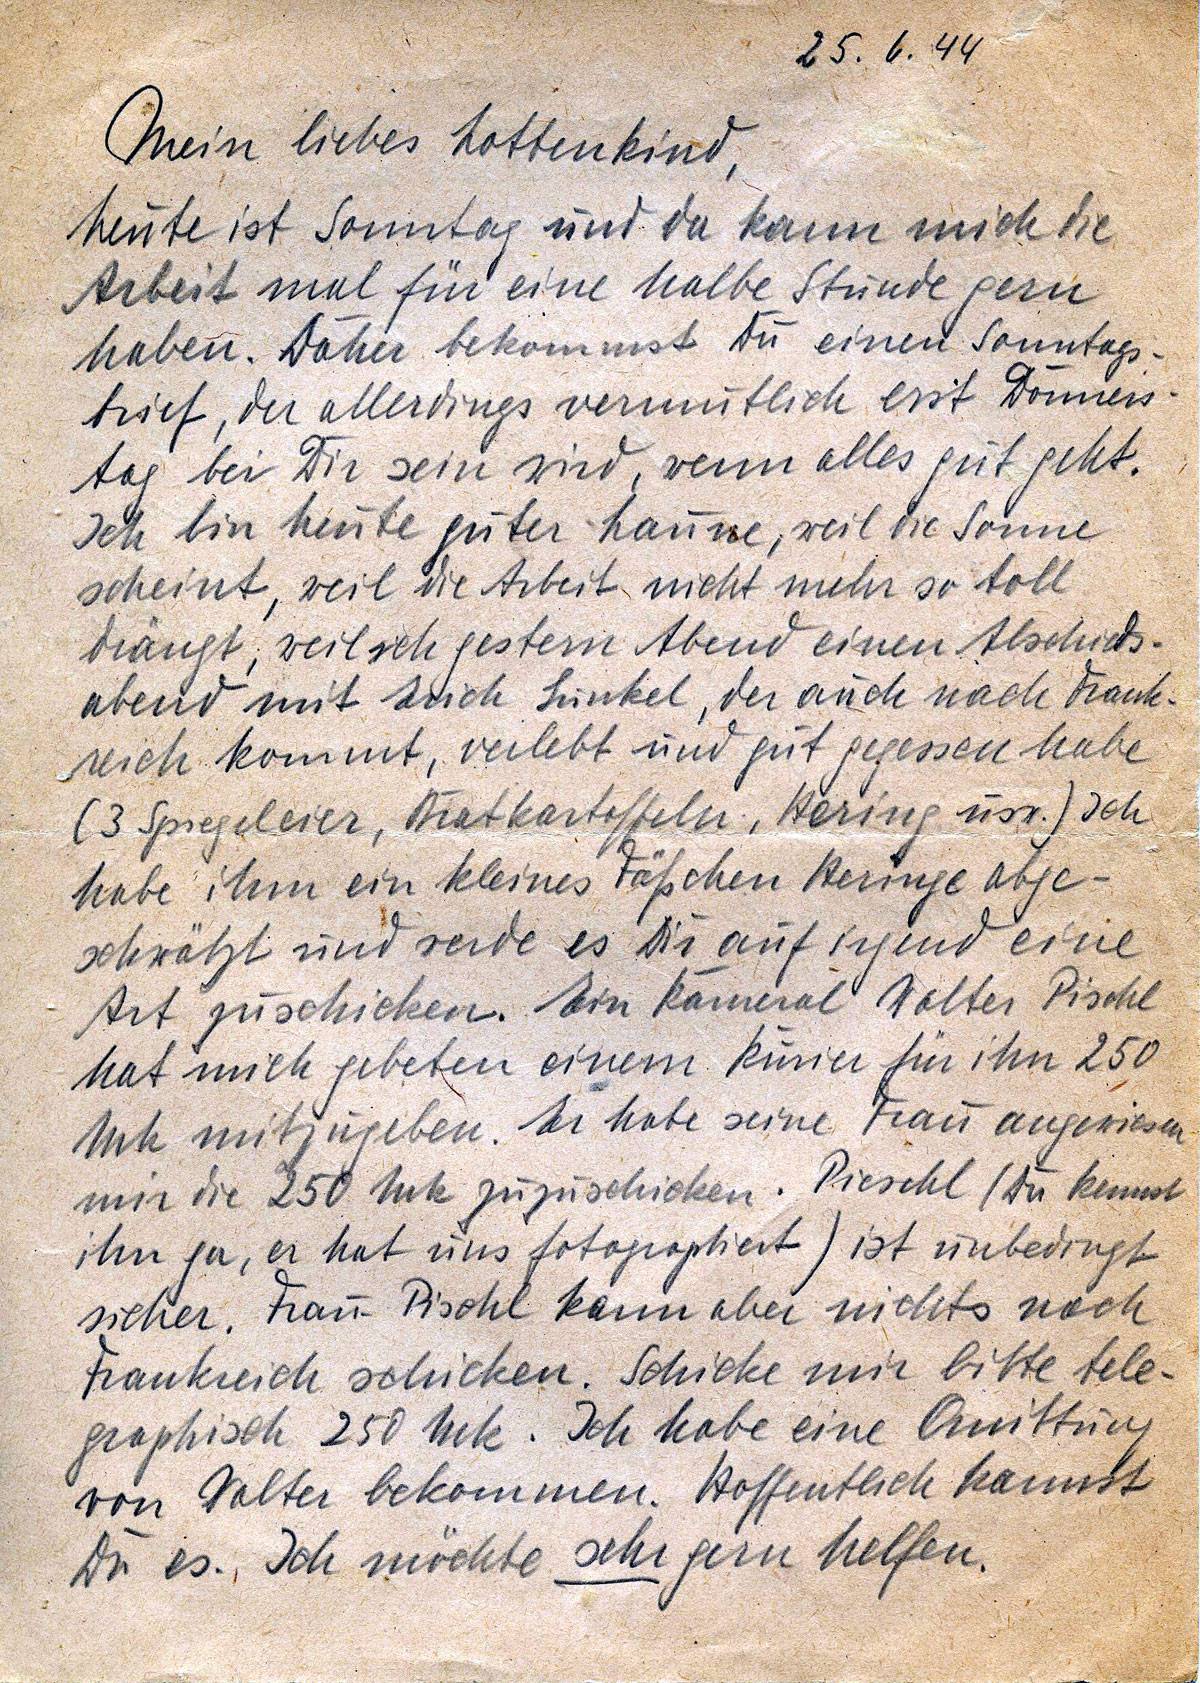 25. 6. 44
Mein liebes Lottenkind,
heute ist Sonntag und da kann mich die
Arbeit mal für eine halbe Stunde gern
haben. Daher bekommst Du einen Sonntags-
brief, der allerdings vermutlich erst Donners-
tag bei Dir sein wird, wenn alles gut geht.
Ich bin heute guter Laune, weil die Sonne
scheint, weil die Arbeit nicht mehr so toll
drängt, weil ich gestern Abend einen Abschieds-
abend mit Erich Sunkel, der auch nach Frank-
reich kommt, verlebt und gut gegessen habe
(3 Spiegeleier, Bratkartoffeln, Hering usw.) Ich
habe ihm ein kleines Fäßchen Heringe abge-
schwätzt und werde es Dir auf irgend eine
Art zuschicken. Ein Kamerad Walter Pischl
hat mich gebeten einem Kurier für ihn 250
Mk mitzugeben. Er habe seine Frau angewiesen
mir die 250 Mk zuzuschicken. Pieschl (Du kennst
ihn ja, er hat uns fotographiert) ist unbedingt
sicher. Frau Pischl kann aber nichts nach
Frankreich schicken. Schicke mir bitte tele-
graphisch 250 Mk. Ich habe eine Quittung
von Walter bekommen. Hoffentlich kannst
Du es. Ich möchte sehr gern helfen.